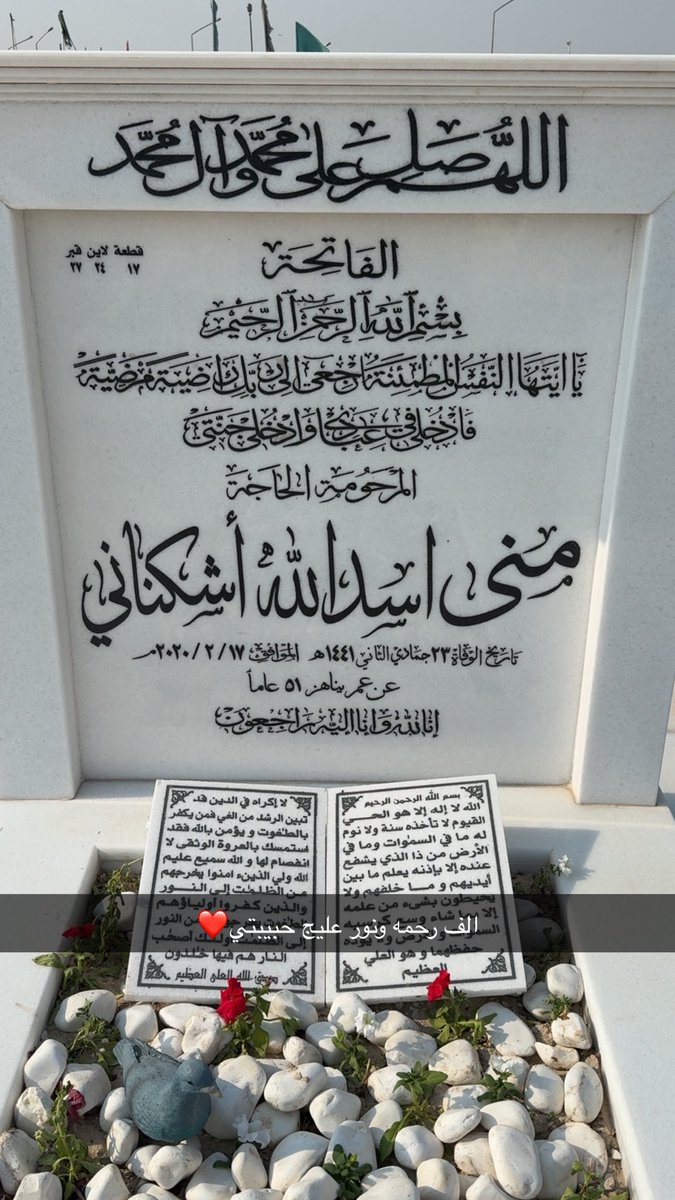 اللهم صل على محمد وآل محمد
قطعة لاين قبر
١٧ ٢٤ ٢٧
الفاتحة
بسم الله الرحمن الرحيم
يا ايتها النفس المطمئنة ارجعي الى ربك راضية مرضية
فادخلي في عبادي وادخلي جنتي
المرحومة الحاجة
منى اسد الله أشكناني
تاريخ الوفاة ٢٣ جمادي الثاني ١٤٤١هـ الموافق ٢٠٢٠/٢/١٧م
عن عمر يناهز ٥١ عاماً
انا لله وانا اليه راجعون
بسم الله الرحمن الرحيم
الله لا إله إلا هو الحي
القيوم لا تأخذه سنة ولا نوم
له ما في السموات وما في
الأرض من ذا الذي يشفع
عنده إلا بإذنه يعلم ما بين
أيديهم و ما خلفهم ولا
يحيطون بشيء من علمه
إلا بما شاء وسع
حفظهما و هو العلي
العظيم
لا إكراه في الدين قد
تبين الرشد من الغي فمن يكفر
بالطغوت و يؤمن بالله فقد
استمسك بالعروة الوثقى لا
انفصام لها و الله سميع عليم
الله ولي الذين ءامنوا يخرجهم
من الظلمات إلى النور
والذين كفروا أولياؤهم
من النور
إلى أصحب
النار هم فيها خلدون
صدق الله العلي العظيم
الف رحمه ونور عليج حبيبتي❤️